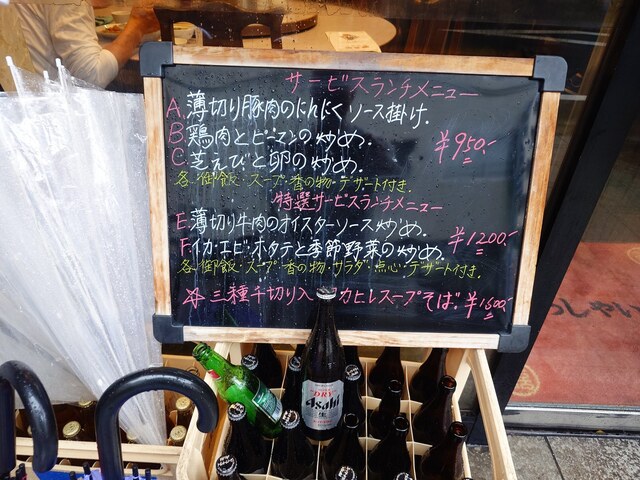 サービスランチメニュー
A. 薄切り豚肉のにんにくソース掛け.
B 鶏肉とピーマンの炒め.
C. 芝えびと卵の炒め.
¥950.-
各・御飯・スープ・香の物・デザート付き.
特選サービスランチメニュー
E. 薄切り牛肉のオイスターソース炒め.
F. イカ・エビ・ホタテと季節野菜の炒め.
¥1200.-
各・御飯・スープ・香の物・サラダ・点心・デザート付き.
三種千切り入 フカヒレスープそば. ¥1,500.-
DRY
Asahi
生
っしゃい